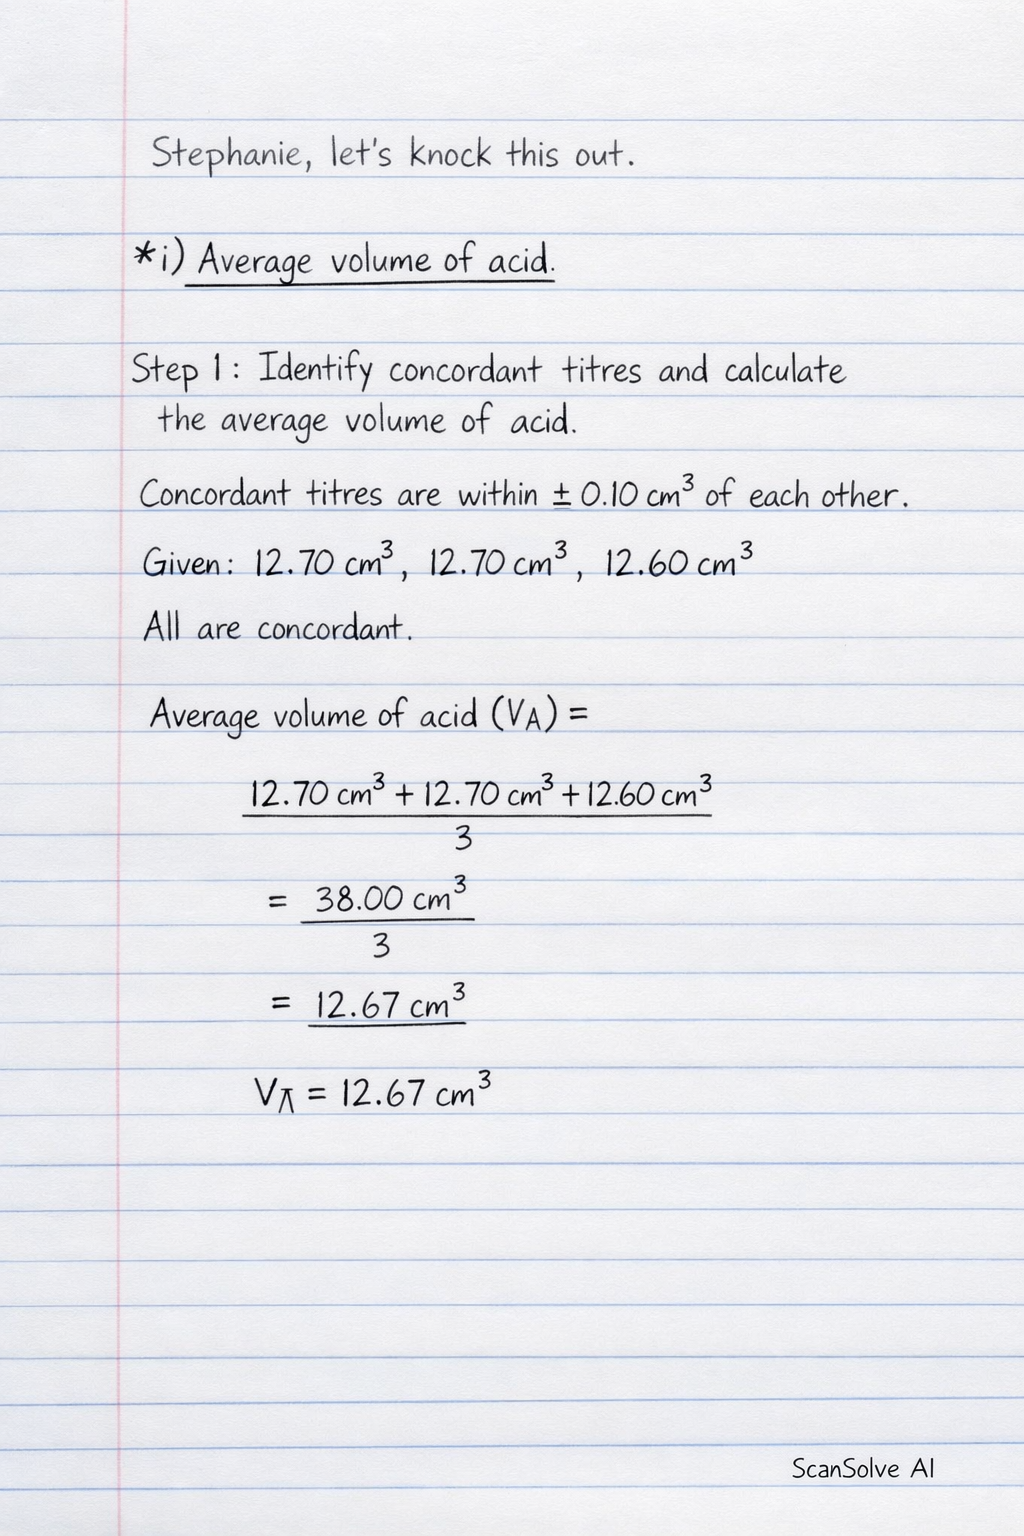 Stephanie, let's knock this out.
*i) Average volume of acid.
Step 1: Identify concordant titres and calculate
the average volume of acid.
Concordant titres are within ± 0.10 cm³ of each other.
Given: 12.70 cm³, 12.70 cm³, 12.60 cm³
All are concordant.
Average volume of acid (VA) =
12.70 cm³ + 12.70 cm³ + 12.60 cm³
3
= 38.00 cm³
3
= 12.67 cm³
VA = 12.67 cm³
ScanSolve AI